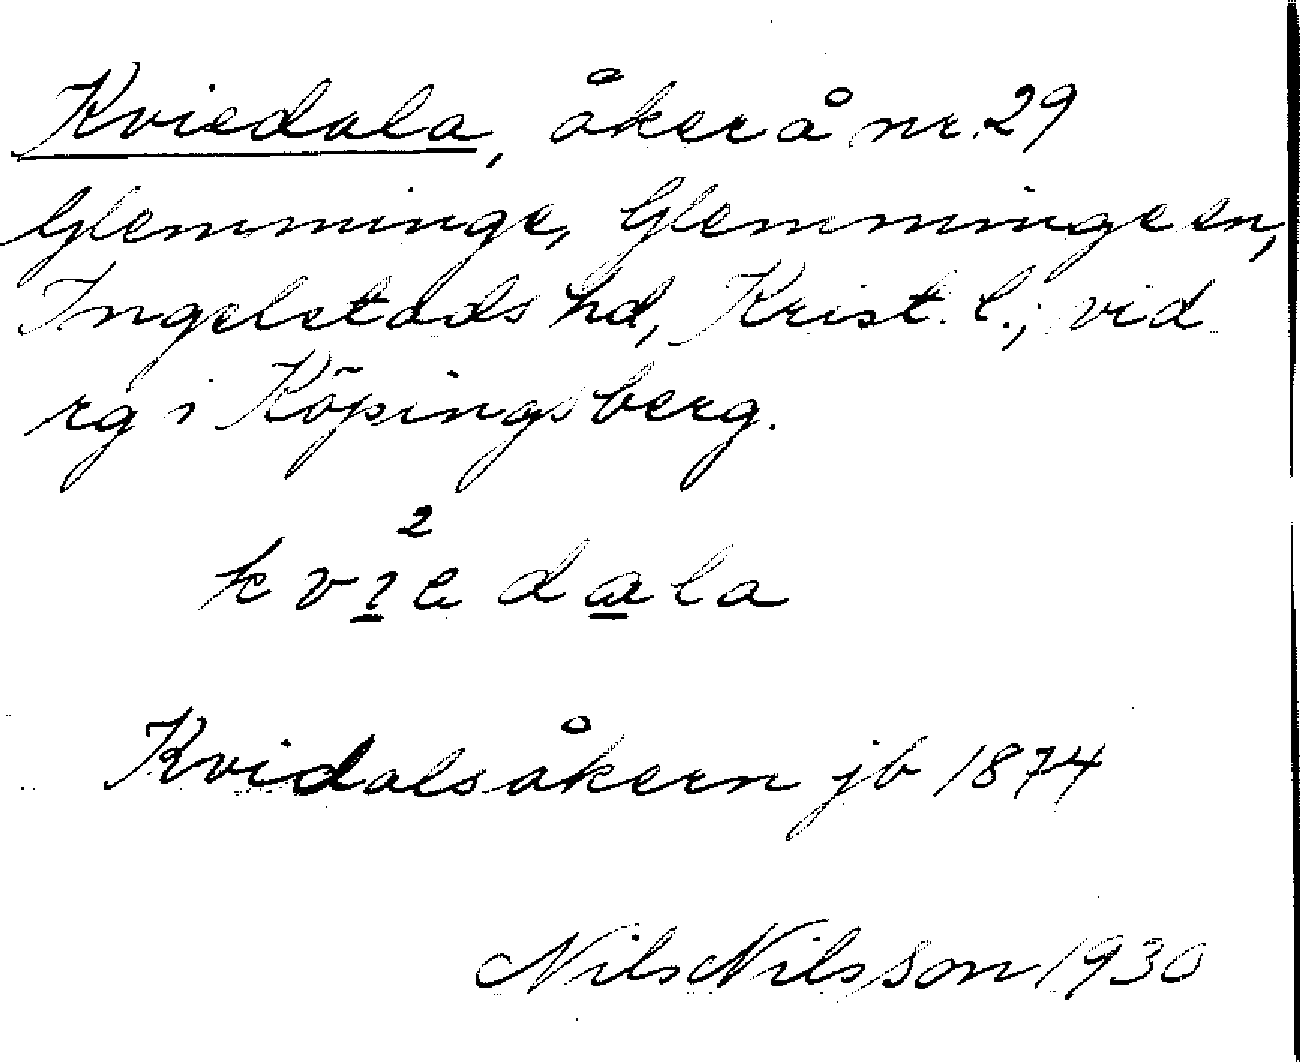 Kviedala, åker å nr. 29
Glemminge, Glemminge sn,
Ingelstads hd, Krist. l.; vid
rg i Köpingsberg.
2
kvıedala
Kvidalsåkern jb 1874
Nils Nilsson 1930